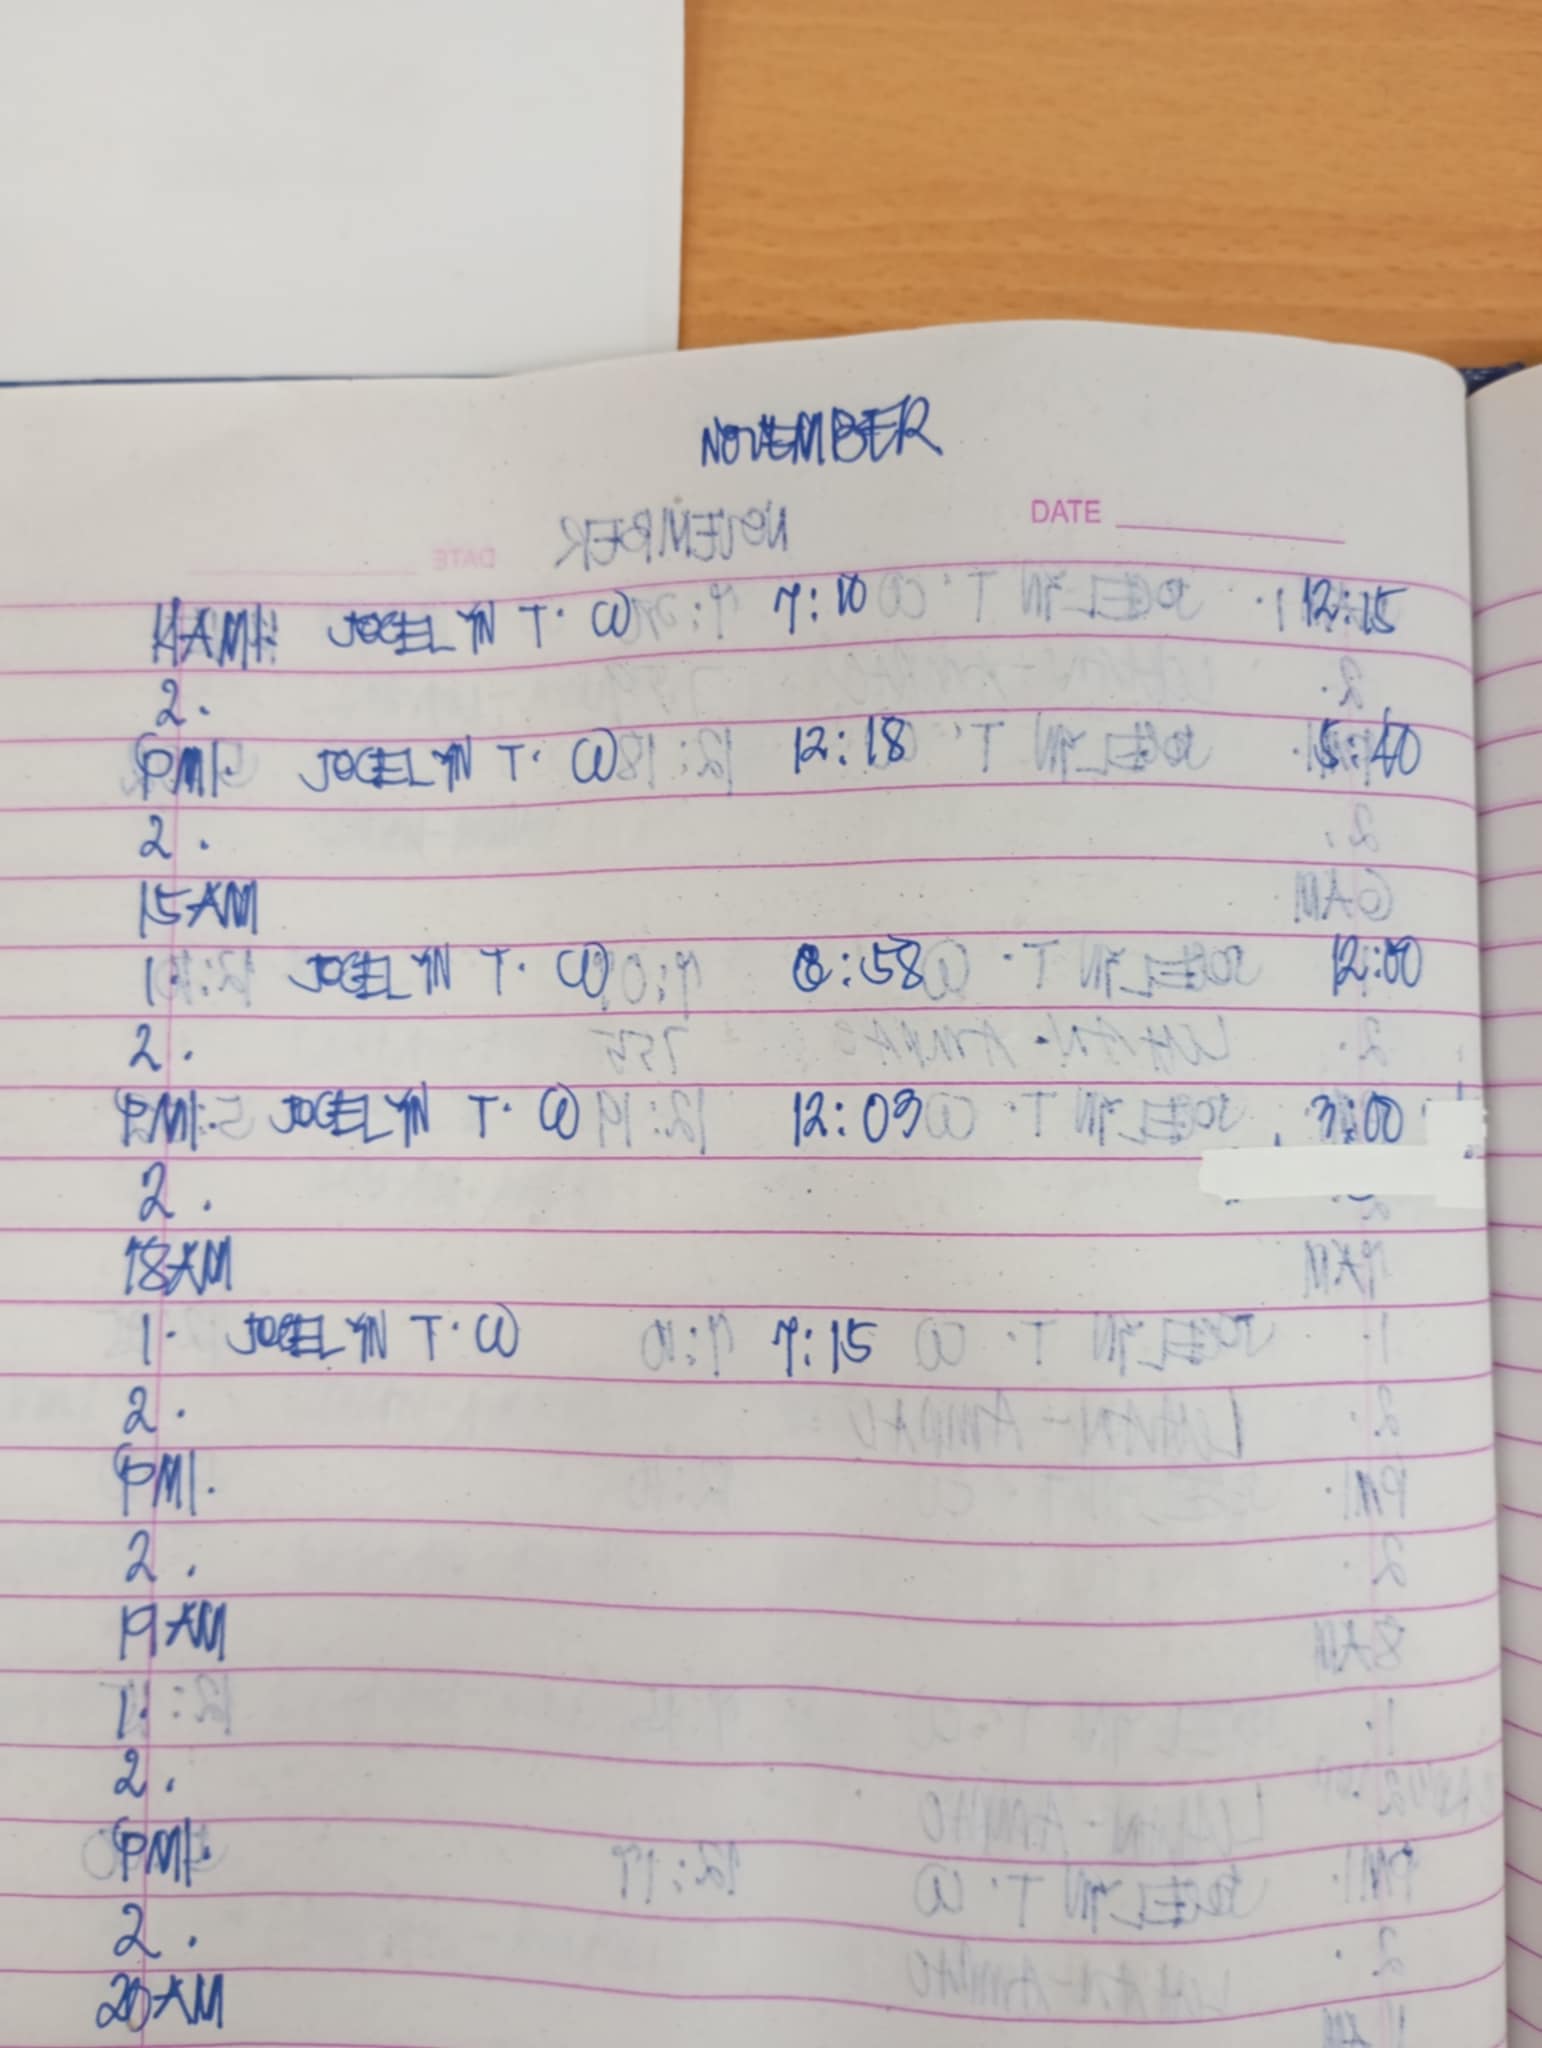 NOVEMBER
DATE
14AM1. JOCELYN T. CO 7:10 12:15
2.
PM1. JOCELYN T. CO 12:18 5:40
2.
15AM
1. JOCELYN T. CO 8:58 12:00
2.
PM1. JOCELYN T. CO 12:03 3:00
2.
18AM
1. JOCELYN T. CO 7:15
2.
PM1.
2.
19AM
1.
2.
PM1.
2.
20AM